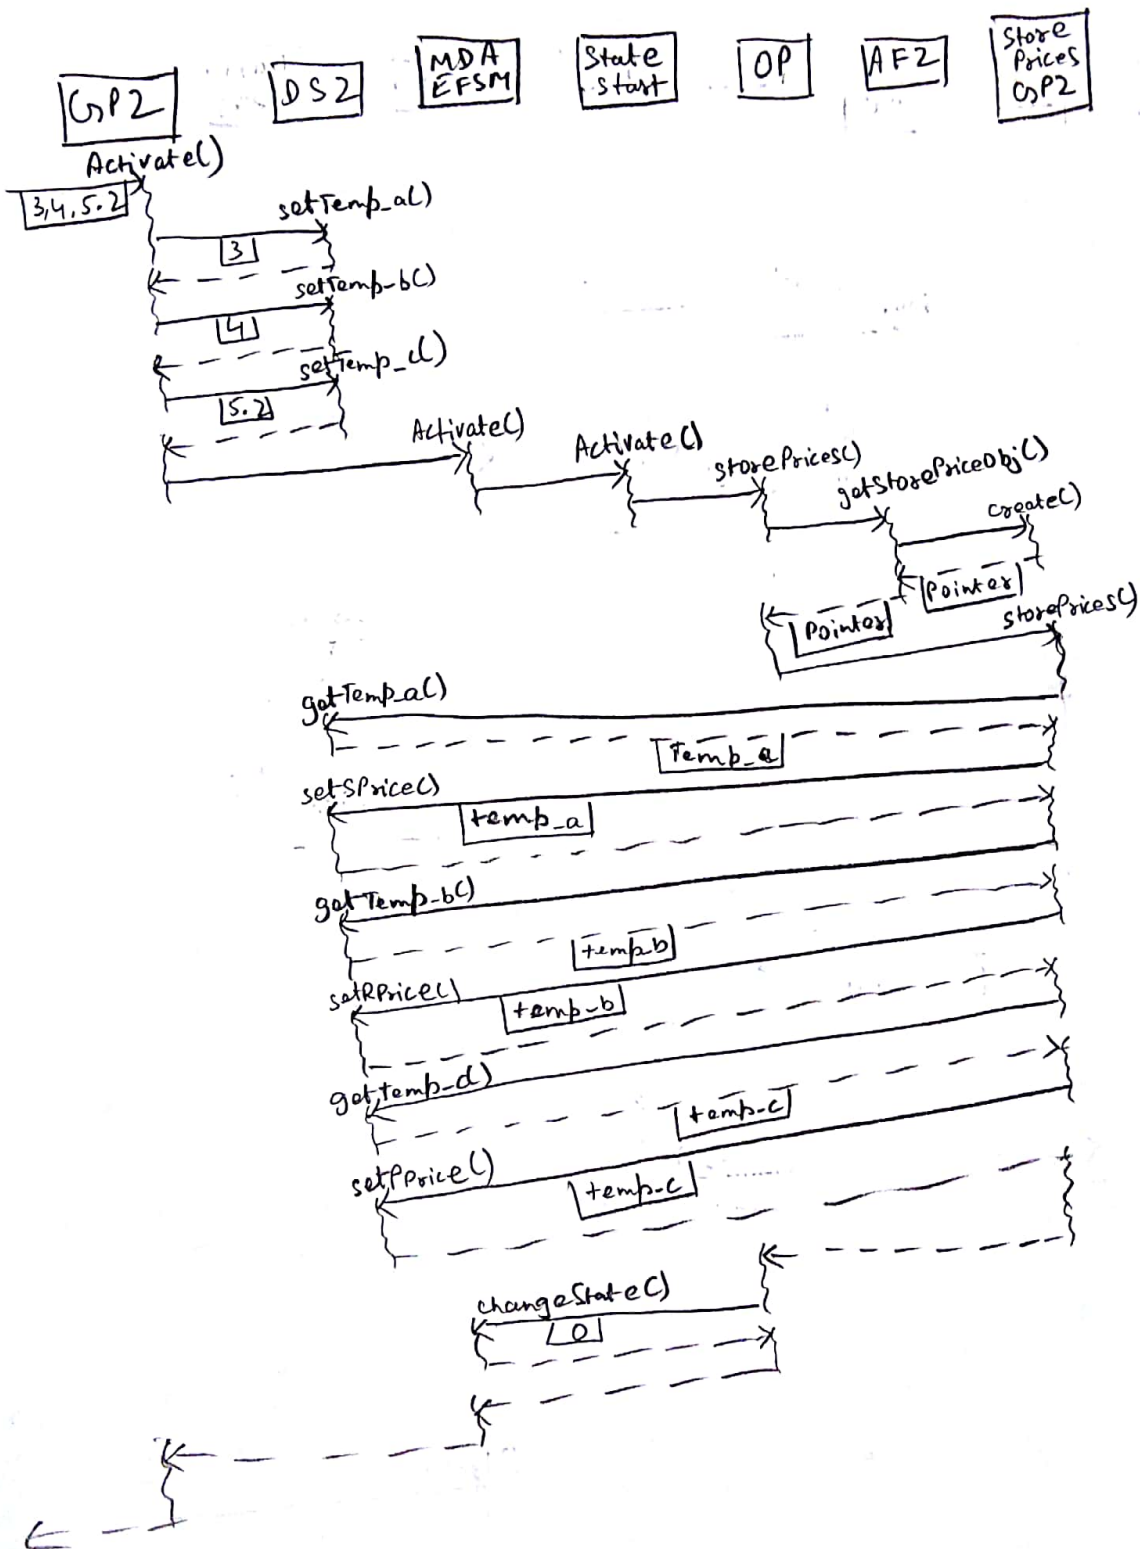 GP2
DS2
MDA
EFSM
State
Start
OP
AF2
Store
Prices
GP2
Activate()
3,4,5.2
setTemp_a()
3
setTemp-b()
4
setTemp_c()
5.2
Activate()
Activate()
storePrices()
getStorePriceObj()
create()
Pointer
Pointer
storePrices()
getTemp_a()
Temp_a
setSPrice()
temp_a
getTemp-b()
temp-b
setRPrice()
temp-b
gettemp-c()
temp-c
setPPrice()
temp-c
changeState()
0